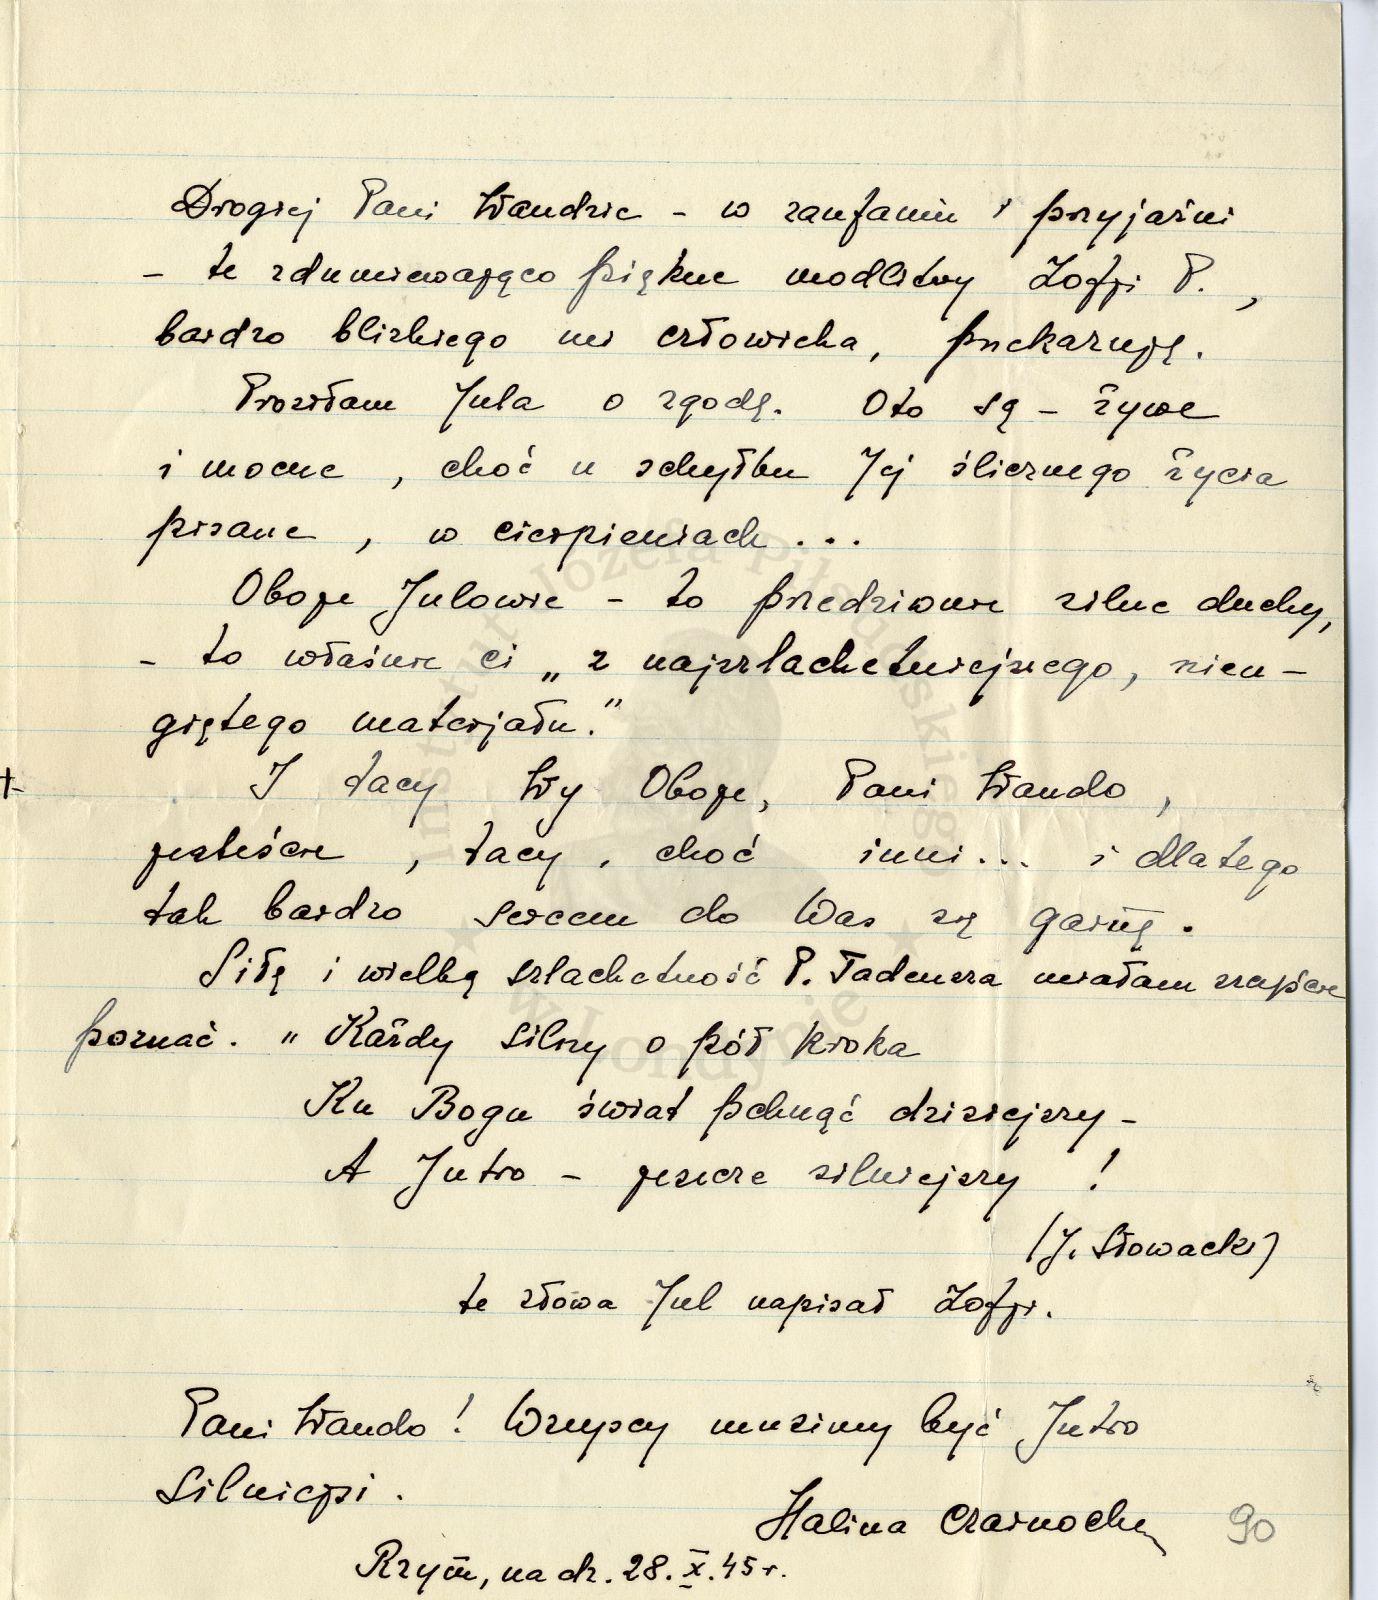 Drogiej Pani Wandzie – w zaufaniu i przyjaźni
– te zdumiewająco piękne modlitwy Zofji P.,
bardzo blizkiego mi człowieka, przekazuję.
Prosiłam Jula o zgodę. Oto są – żywe
i mocne, choć u schyłku Jej ślicznego życia
pisane, w cierpieniach...
Oboje Julowie – to przedziwnie silne duchy,
– to właśnie ci „z najszlachetniejszego, nieu-
giętego materjału."
I tacy Wy Oboje, Pani Wando,
jesteście, tacy, choć inni... i dlatego
tak bardzo sercem do Was się garnę.
Siłę i wielką szlachetność P. Tadeusza miałam szczęście
poznać. „Każdy silny o pół kroka
Ku Bogu świat pchnąć dzisiejszy –
A Jutro – jeszcze silniejszy!
(J. Słowacki)
te słowa Jul napisał Zofji.
Pani Wando! Wszyscy musimy być Jutro
Silniejsi.
Halina Czarnocka
90
Rzym, na dz. 28.X.45 r.
Instytut Józefa Piłsudskiego
w Londynie